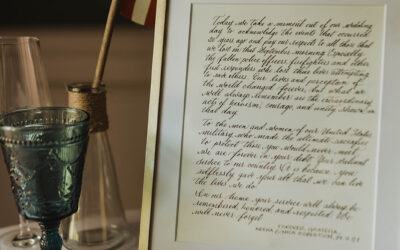 Today we take a moment out of our wedding
day to acknowledge the events that occurred
20 years ago and pay our respect to all those that
we lost on that September morning. Especially
the fallen police officers firefighters and other
first responders who lost their lives attempting
to save others. Our lives and perception of
the world changed forever, but what we
will always remember are the extraordinary
acts of heroism, courage, and unity shown on
that day.
To the men and women of our United States
military who made the ultimate sacrifice
to protect those you would never meet
we are forever in your debt. Your valiant
service to our country is because you
selflessly gave your all that we can live
the lives we do.
In our home your service will always be
remembered honored and respected. We
will never forget.